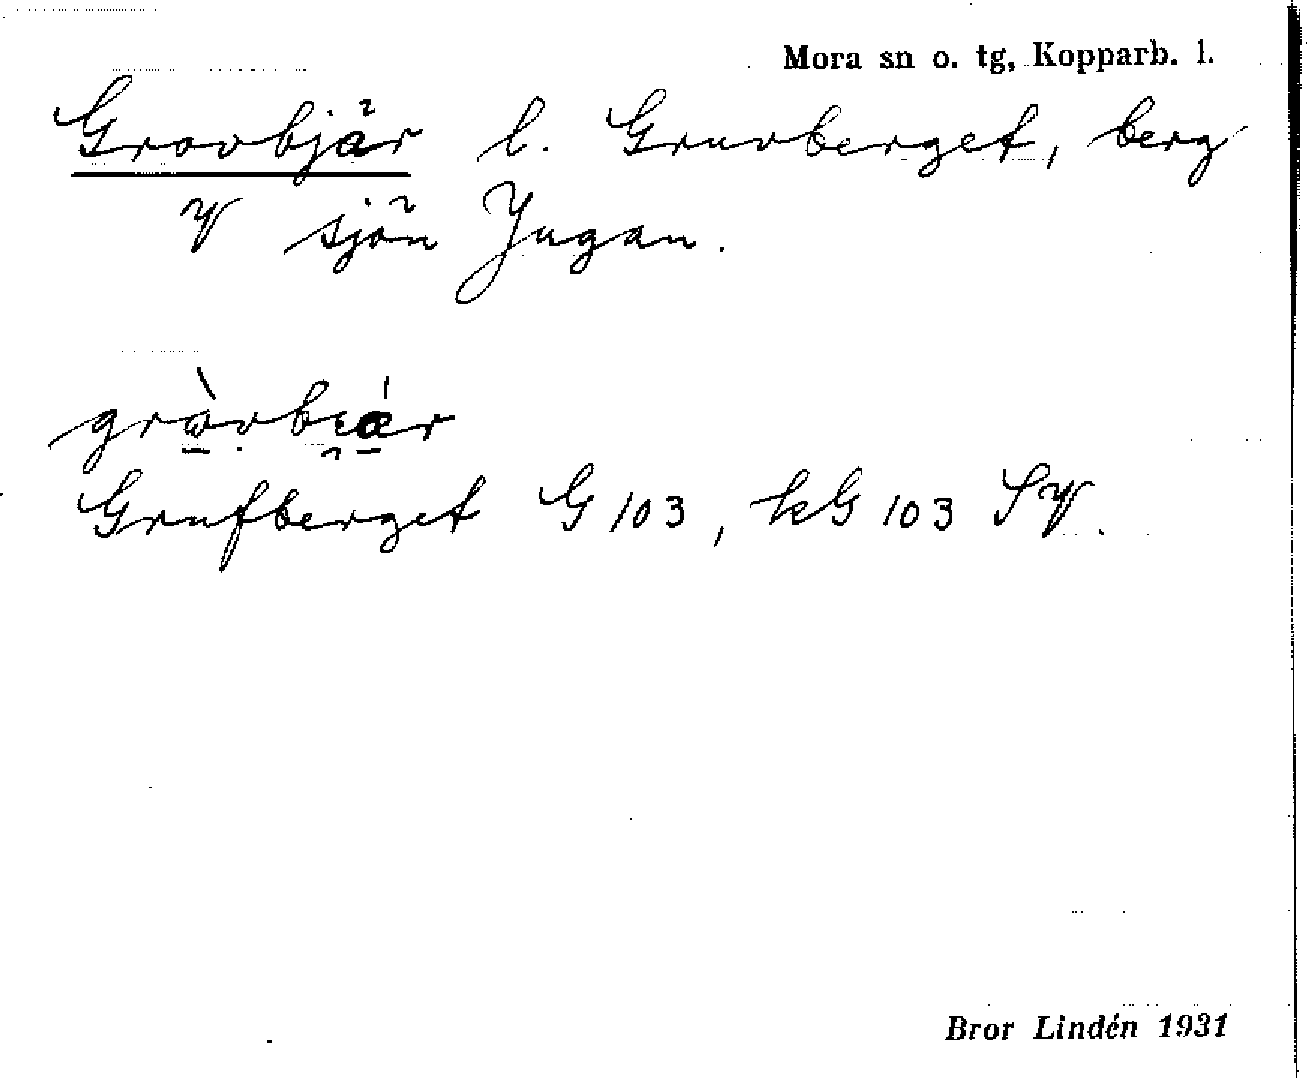 Mora sn o. tg, Kopparb. l.
Grovbjär l. Gruvberget, berg
V sjön Jugan.
Grufberget G 103, kG 103 SV.
Bror Lindén 1931